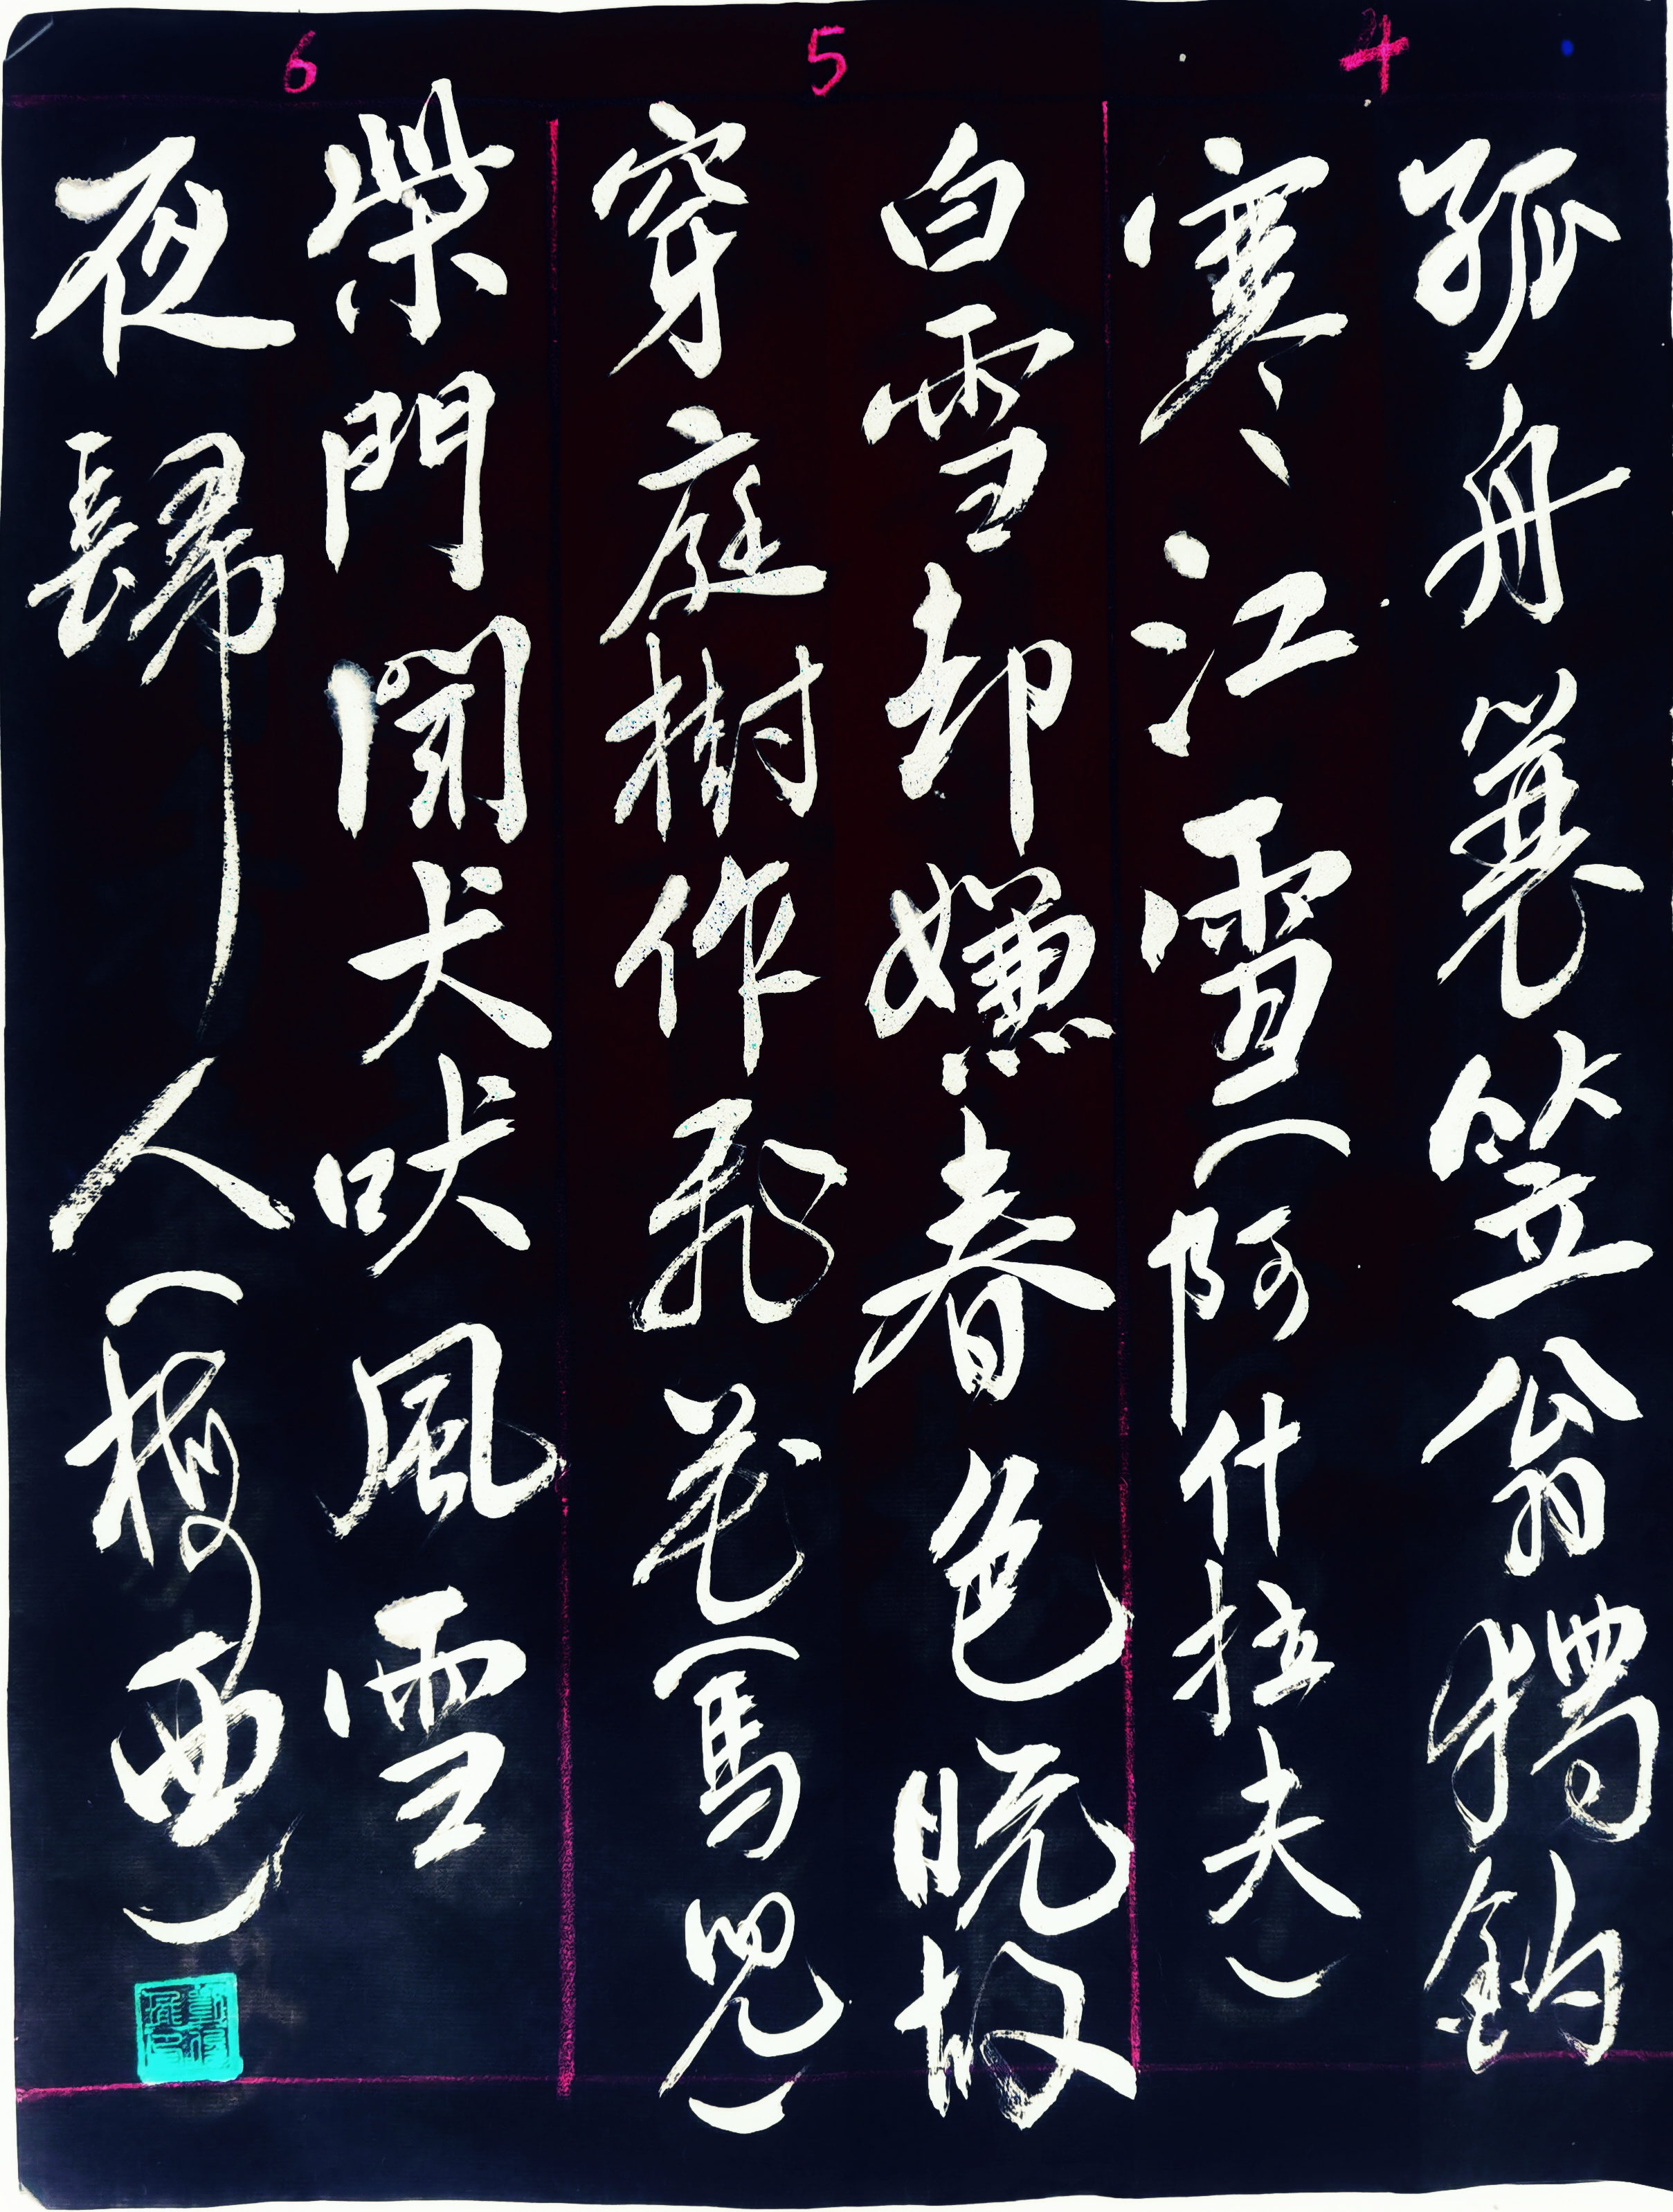 4
孤舟蓑笠翁獨釣
寒江雪(阿什拉夫)
5
白雪却嫌春色晚故
穿庭樹作飛花(馬兒)
6
柴門聞犬吠風雪
夜歸人(梅西)